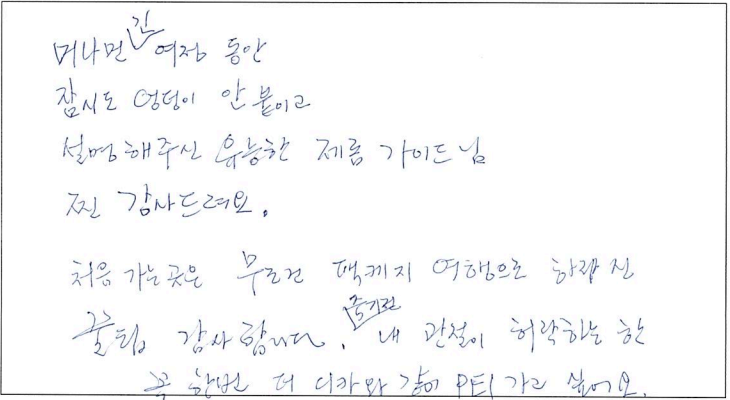 머나먼 긴 여정 동안
잠시도 엉덩이 안 붙이고
설명해주신 유능한 제롬 가이드님
찐 감사드려요.
처음 가는곳은 무조건 팩케지 여행으로 하라신
꿀팁 감사합니다. 내 관절이 허락하는 한
꼭 한번 더 디카와 같이 가고 싶어요.